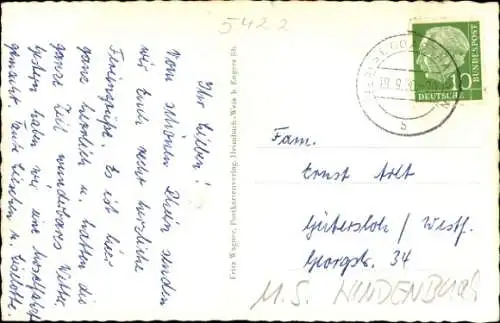 5422
Ihr Lieben!
Vom schönen Rhein senden
wir Euch sehr herzliche
Feriengrüße. Es ist hier
ganz herrlich u. hatten die
ganze Zeit wunderbares Wetter.
Gestern haben wir eine Moselfahrt
gemacht. Tante Lieschen u. Liselotte
Fritz Wagner, Postkartenverlag, Heimbach-Weis b. Engers Rh.
DEUTSCHE BUNDESPOST
10
19.9.
b
Fam.
Ernst Arlt
Gütersloh / Westf.
Georgstr. 34
M.S. WINDENBUCH